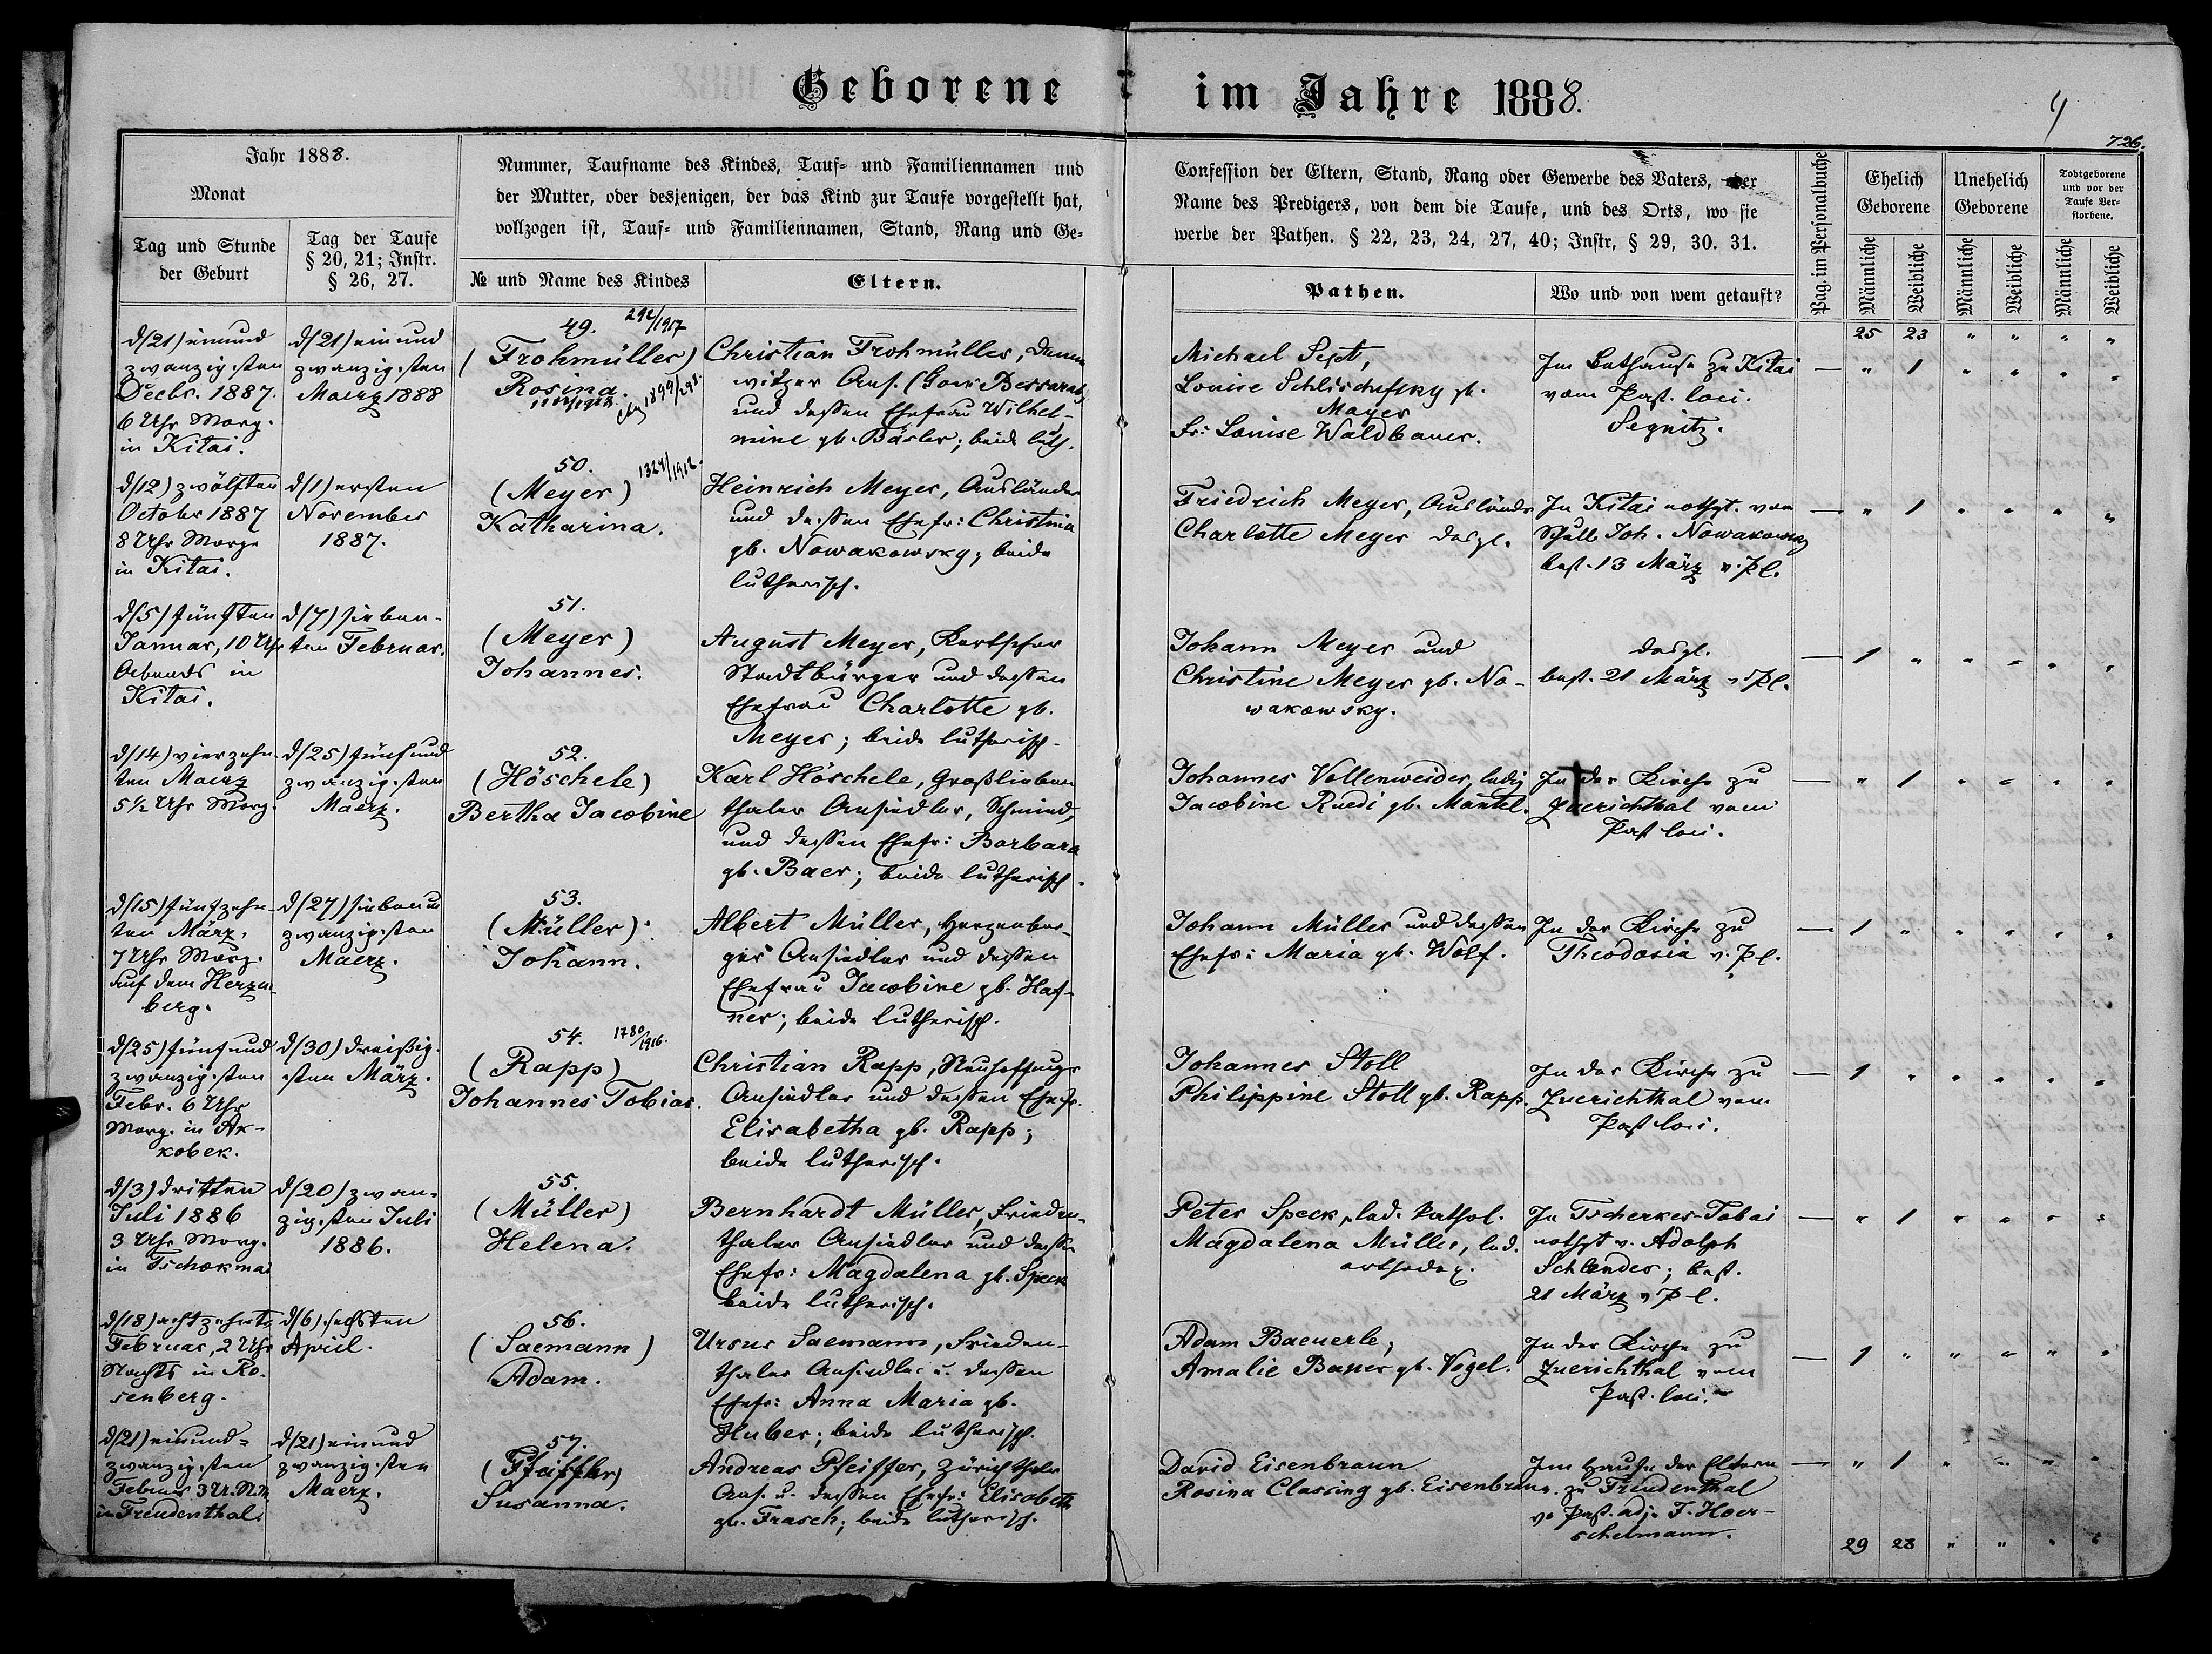 Geborene im Jahre 1888.
4
726.
Jahr 1888.
Monat
Tag und Stunde
der Geburt
Tag der Taufe
§ 20, 21; Instr.
§ 26, 27.
Nummer, Taufname des Kindes, Tauf- und Familiennamen und
der Mutter, oder desjenigen, der das Kind zur Taufe vorgestellt hat,
vollzogen ist, Tauf- und Familiennamen, Stand, Rang und Ge-
№ und Name des Kindes
Eltern.
Confession der Eltern, Stand, Rang oder Gewerbe des Vaters, der
Name des Predigers, von dem die Taufe, und des Orts, wo sie
werbe der Pathen. § 22, 23, 24, 27, 40; Instr, § 29, 30. 31.
Pathen.
Wo und von wem getauft?
Pag. im Personalbuche
Ehelich
Geborene
Unehelich
Geborene
Todtgeborene
und vor der
Taufe Ver-
storbene.
Männliche
Weibliche
Männliche
Weibliche
Männliche
Weibliche
25 23 " " " "
d/21) einund
zwanzigsten
Decbr. 1887.
6 Uhr Morg.
in Kitai.
d/21) einund
zwanzigsten
Maerz 1888
49. 292/1917
(Frohmüller)
Rosina.
1899/298.
Christian Frohmüller, Denne
witzer Ans. (Gouv Bessarab)
und dessen Ehefrau Wilhel-
mine gb. Bäsler; beide luth.
Michael Sept,
Louise Schlischefsky gb.
Mayer
Fr: Louise Waldbauer.
Im Bethause zu Kitai
vom Past. loci.
Segnitz.
— " 1 " " " "
d/12) zwölften
October 1887
8 Uhr Morge
in Kitai.
d/1) ersten
November
1887.
50. 1324/1912.
(Meyer)
Katharina.
Heinrich Meyer, Ausländer
und dessen Ehefr: Christina
gb. Nowakowsky; beide
lutherisch.
Friedrich Meyer, Ausländr
Charlotte Meyer desgl.
In Kitai nothgt. von
Schull. Joh. Nowakowsky
best. 13 März v. P.l.
— " 1 " " " "
d/5) fünften
Januar, 10 Uhr
Abends in
Kitai.
d/7) sieben-
ten Februar.
51.
(Meyer)
Johannes.
August Meyer, Kertscher
Stadtbürger und dessen
Ehefrau Charlotte gb.
Meyer; beide lutherisch.
Johann Meyer und
Christine Meyer gb. No-
wakowsky.
desgl.
best. 21 März v. P.l.
— 1 " " " " "
d/14) vierzehn-
ten Maerz
5½ Uhr Morg.
d/25) fünfund
zwanzigsten
Maerz.
52.
(Höschele)
Bertha Jacobine
Karl Höschele, Großlieben
thaler Ansiedler, Schmied,
und dessen Ehefr: Barbara
gb. Baer; beide lutherisch.
Johannes Vollenweider, ledig
Jacobine Ruedi gb. Mantel.
In der Kirche zu
Zuerichthal vom
Past loci.
— " 1 " " " "
d/15) fünfzehn-
ten März,
7 Uhr Morg.
auf dem Herzen
berg.
d/27) siebenu
zwanzigsten
Maerz.
53.
(Müller)
Johann.
Albert Müller, Herzenber-
ger Ansiedler und dessen
Ehefrau Jacobine gb. Haf-
ner; beide lutherisch.
Johann Müller und dessen
Ehefr: Maria gb. Wolf.
In der Kirche zu
Theodosia v. P.l.
— 1 " " " " "
d/25) fünfund
zwanzigsten
Febr. 6 Uhr
Morg. in Ak-
kobek.
d/30) dreißig-
sten März.
54. 1780/1916.
(Rapp)
Johannes Tobias.
Christian Rapp, Neuhoffnungs
Ansiedler und dessen Ehefr.
Elisabetha gb. Rapp;
beide lutherisch.
Johannes Stoll
Philippine Stoll gb. Rapp.
In der Kirche zu
Zuerichthal vom
Past loci.
— 1 " " " " "
d/3) dritten
Juli 1886
3 Uhr Morg.
in Tschokmai
d/20) zwan-
zigsten Juli
1886.
55.
(Müller)
Helena.
Bernhardt Müller, Frieden-
thaler Ansiedler und dessen
Ehefr: Magdalena gb. Speck
beide lutherisch.
Peter Speck, led. kathol.
Magdalena Müller, led.
orthodox.
In Tscherkes-Tobai
nothgt v. Adolph
Schlender; best.
21 März v P-l.
— " 1 " " " "
d/18) achtzehnte
Februar, 2 Uhr
Nachts in Ro-
senberg.
d/6) sechsten
April.
56.
(Saemann)
Adam.
Ursus Saemann, Frieden-
thaler Ansiedler u. dessen
Ehefr: Anna Maria gb.
Huber; beide lutherisch.
Adam Baeuerle,
Amalie Bauer gb. Vogel.
In der Kirche zu
Zuerichthal vom
Past. loci.
— 1 " " " " "
d/21) einund-
zwanzigsten
Februar 3 U. N.M.
in Freudenthal.
d/21) einund
zwanzigsten
Maerz.
57.
(Pfeiffer)
Susanna.
Andreas Pfeiffer, Zürichthaler
Ans. u. dessen Ehefr: Elisabeth
gb. Frasch; beide lutherisch.
David Eisenbraun
Rosina Classing gb. Eisenbraun.
Im Hause der Eltern
zu Freudenthal
v. Past. adj. F. Hoer-
schelmann.
— " 1 " " " "
29 28 " " " "